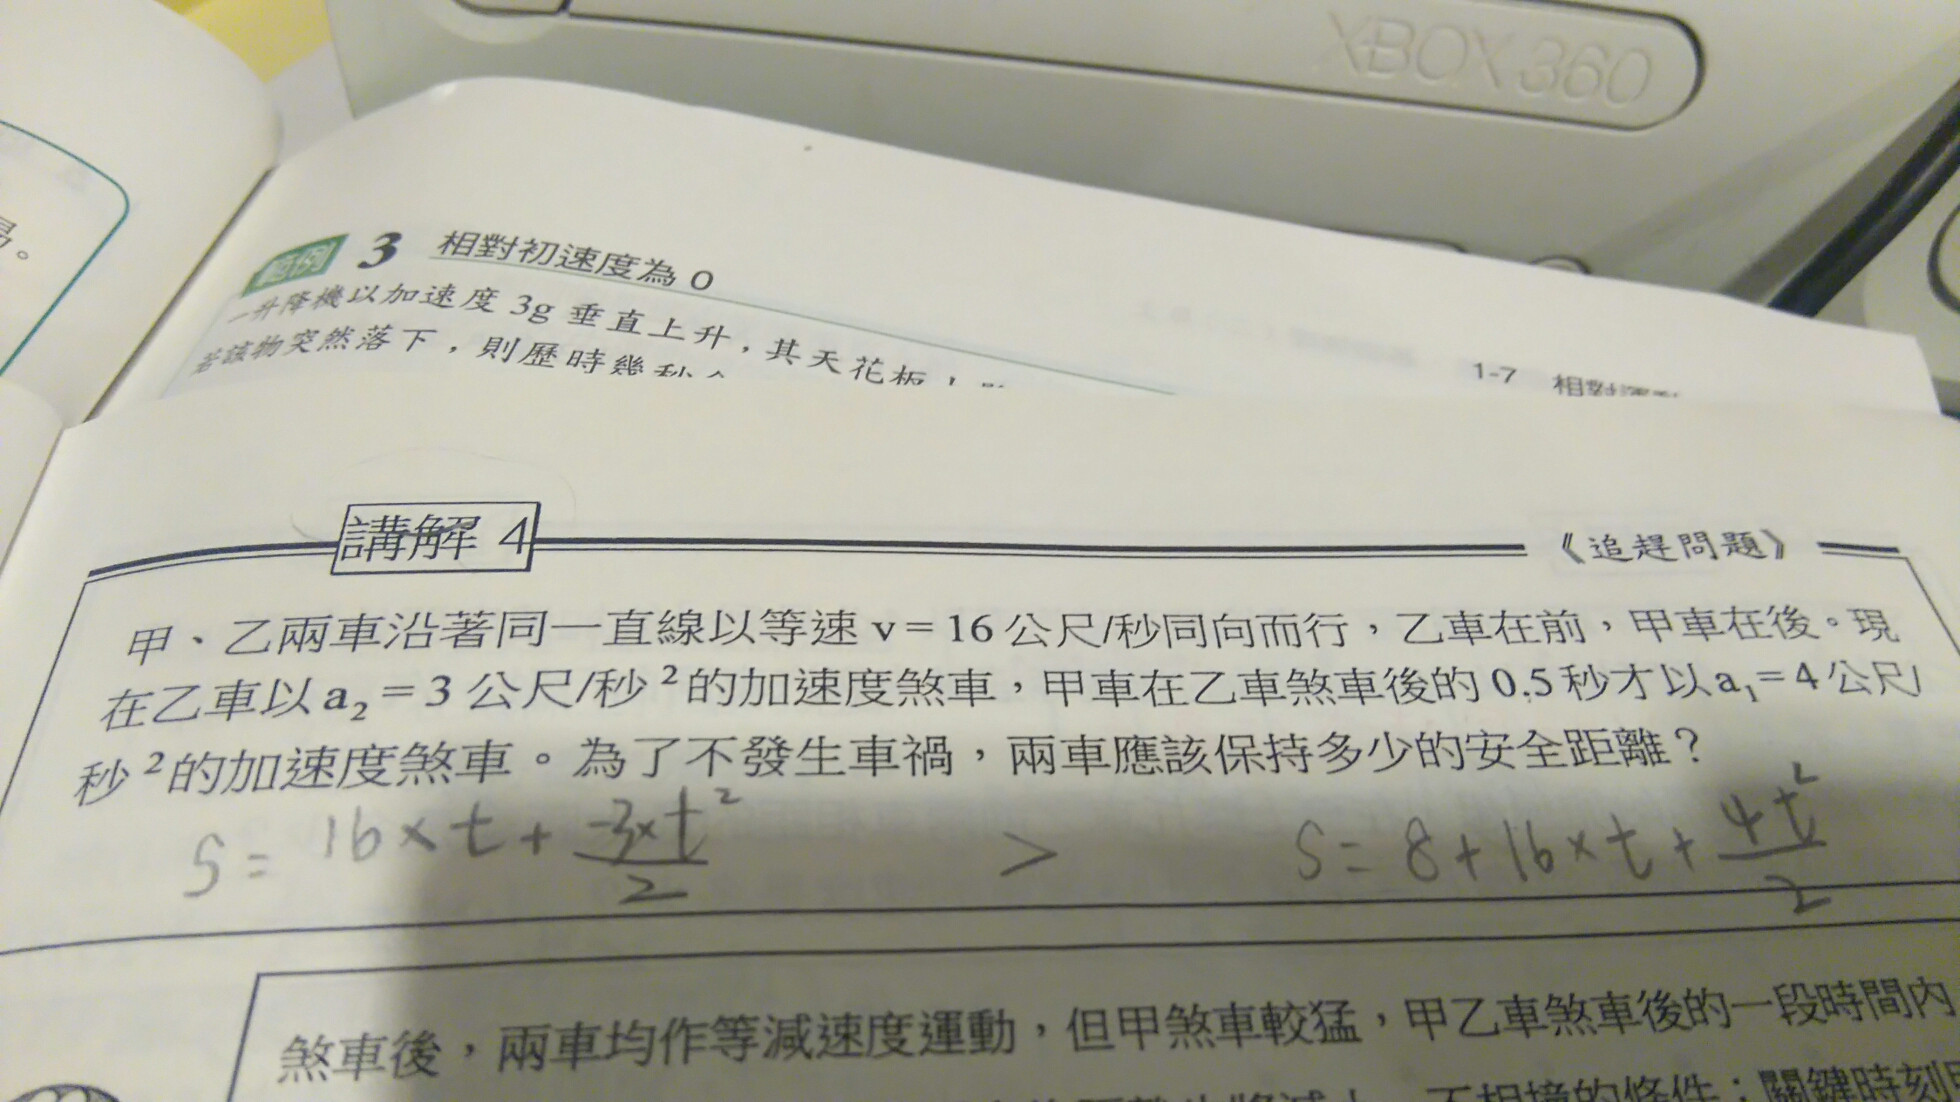 XBOX 360
易。
範例 3 相對初速度為 0
一升降機以加速度 3g 垂直上升，其天花板上
若該物突然落下，則歷時幾秒
1-7 相對運動
講解 4
《追趕問題》
甲、乙兩車沿著同一直線以等速 v = 16 公尺/秒同向而行，乙車在前，甲車在後。現
在乙車以 a₂ = 3 公尺/秒²的加速度煞車，甲車在乙車煞車後的 0.5 秒才以 a₁ = 4 公尺/
秒²的加速度煞車。為了不發生車禍，兩車應該保持多少的安全距離？
S = 16 × t + -3×t²/2 > S = 8 + 16 × t + 4t²/2
煞車後，兩車均作等減速度運動，但甲煞車較猛，甲乙車煞車後的一段時間內
不相撞的條件：關鍵時刻